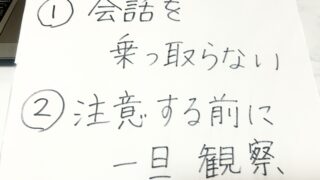 ① 会話を
乗っ取らない
② 注意する前に
一旦 観察、